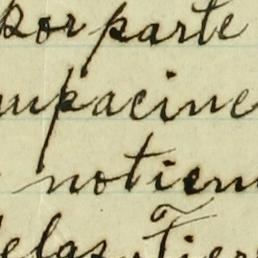 por parte
mpacine
notien
delas Tier